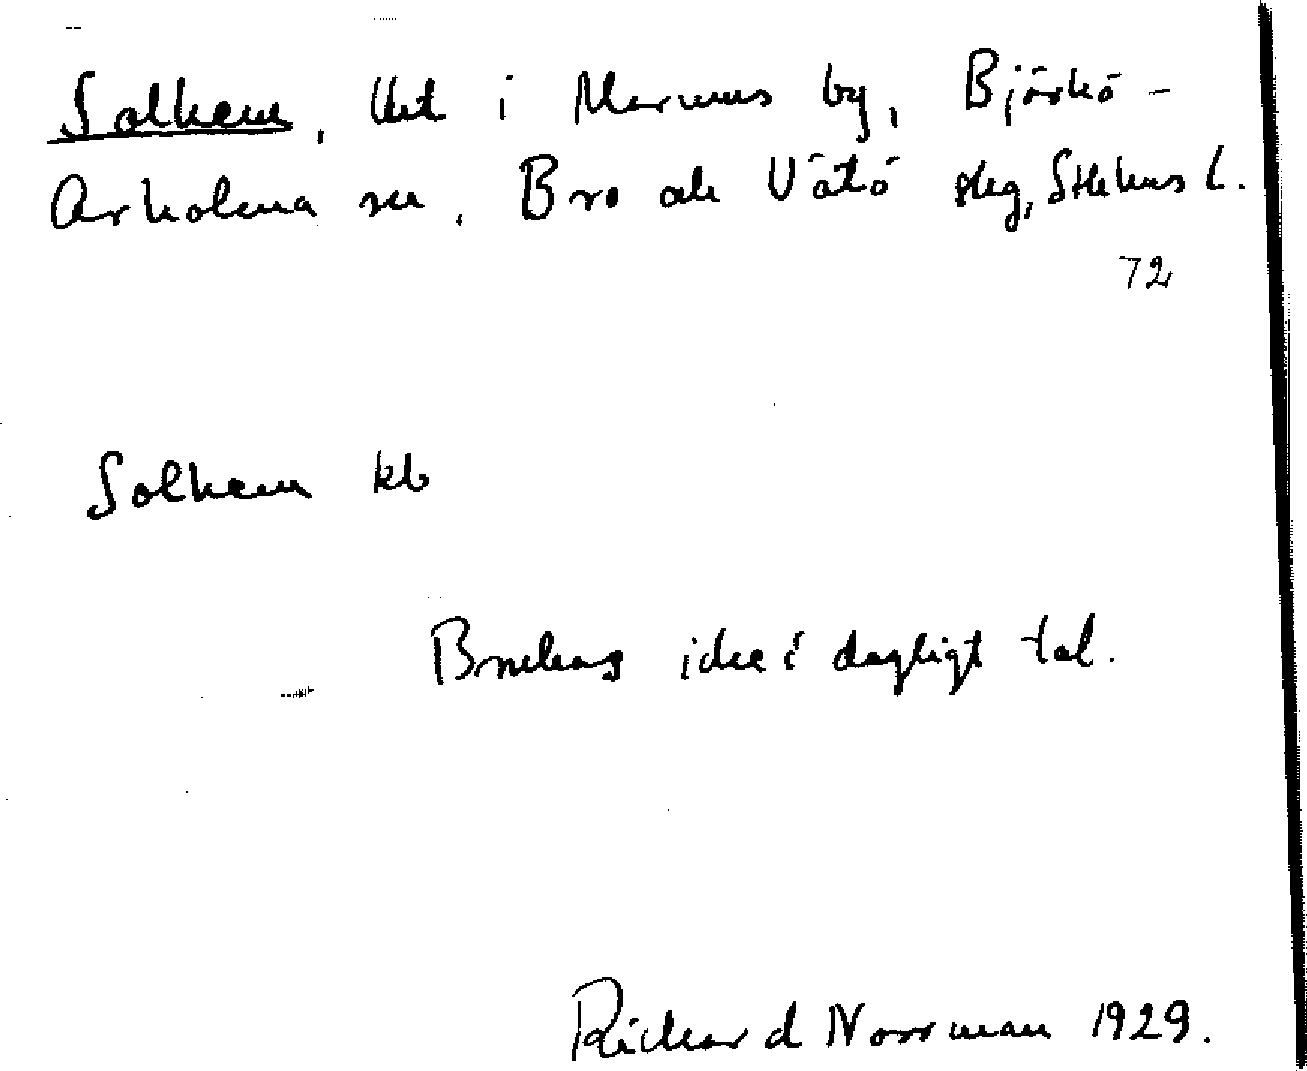 Solhem, lht i Marums by, Björkö-
Arholma sn, Bro och Vätö skg, Sthlms l.
72
Solhem kb
Brukas icke i dagligt tal.
Richard Norrman 1929.